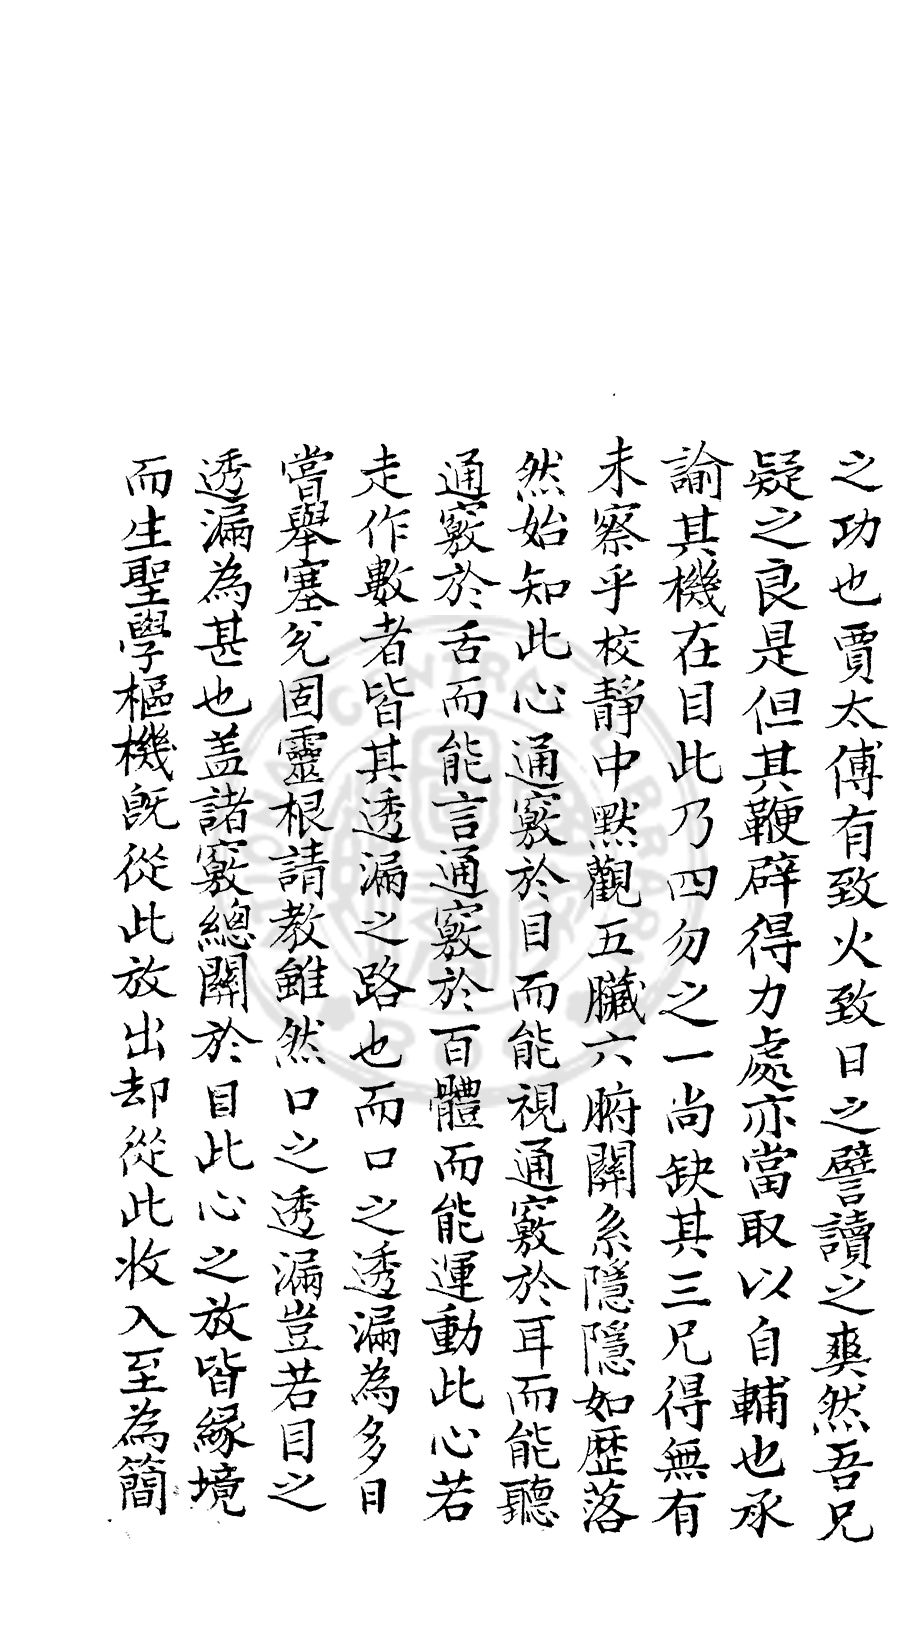 之功也賈太傅有致火致日之譬讀之爽然吾兄
疑之良是但其鞭辟得力處亦當取以自輔也承
諭其機在目此乃四勿之一尚缺其三兄得無有
未察乎校靜中默觀五臟六腑關系隱隱如歷落
然始知此心通竅於目而能視通竅於耳而能聽
通竅於舌而能言通竅於百體而能運動此心若
走作數者皆其透漏之路也而口之透漏為多日
嘗舉塞兌固靈根請教雖然口之透漏豈若目之
透漏為甚也盖諸竅總關於目此心之放皆緣境
而生聖學樞機既從此放出却從此收入至為簡